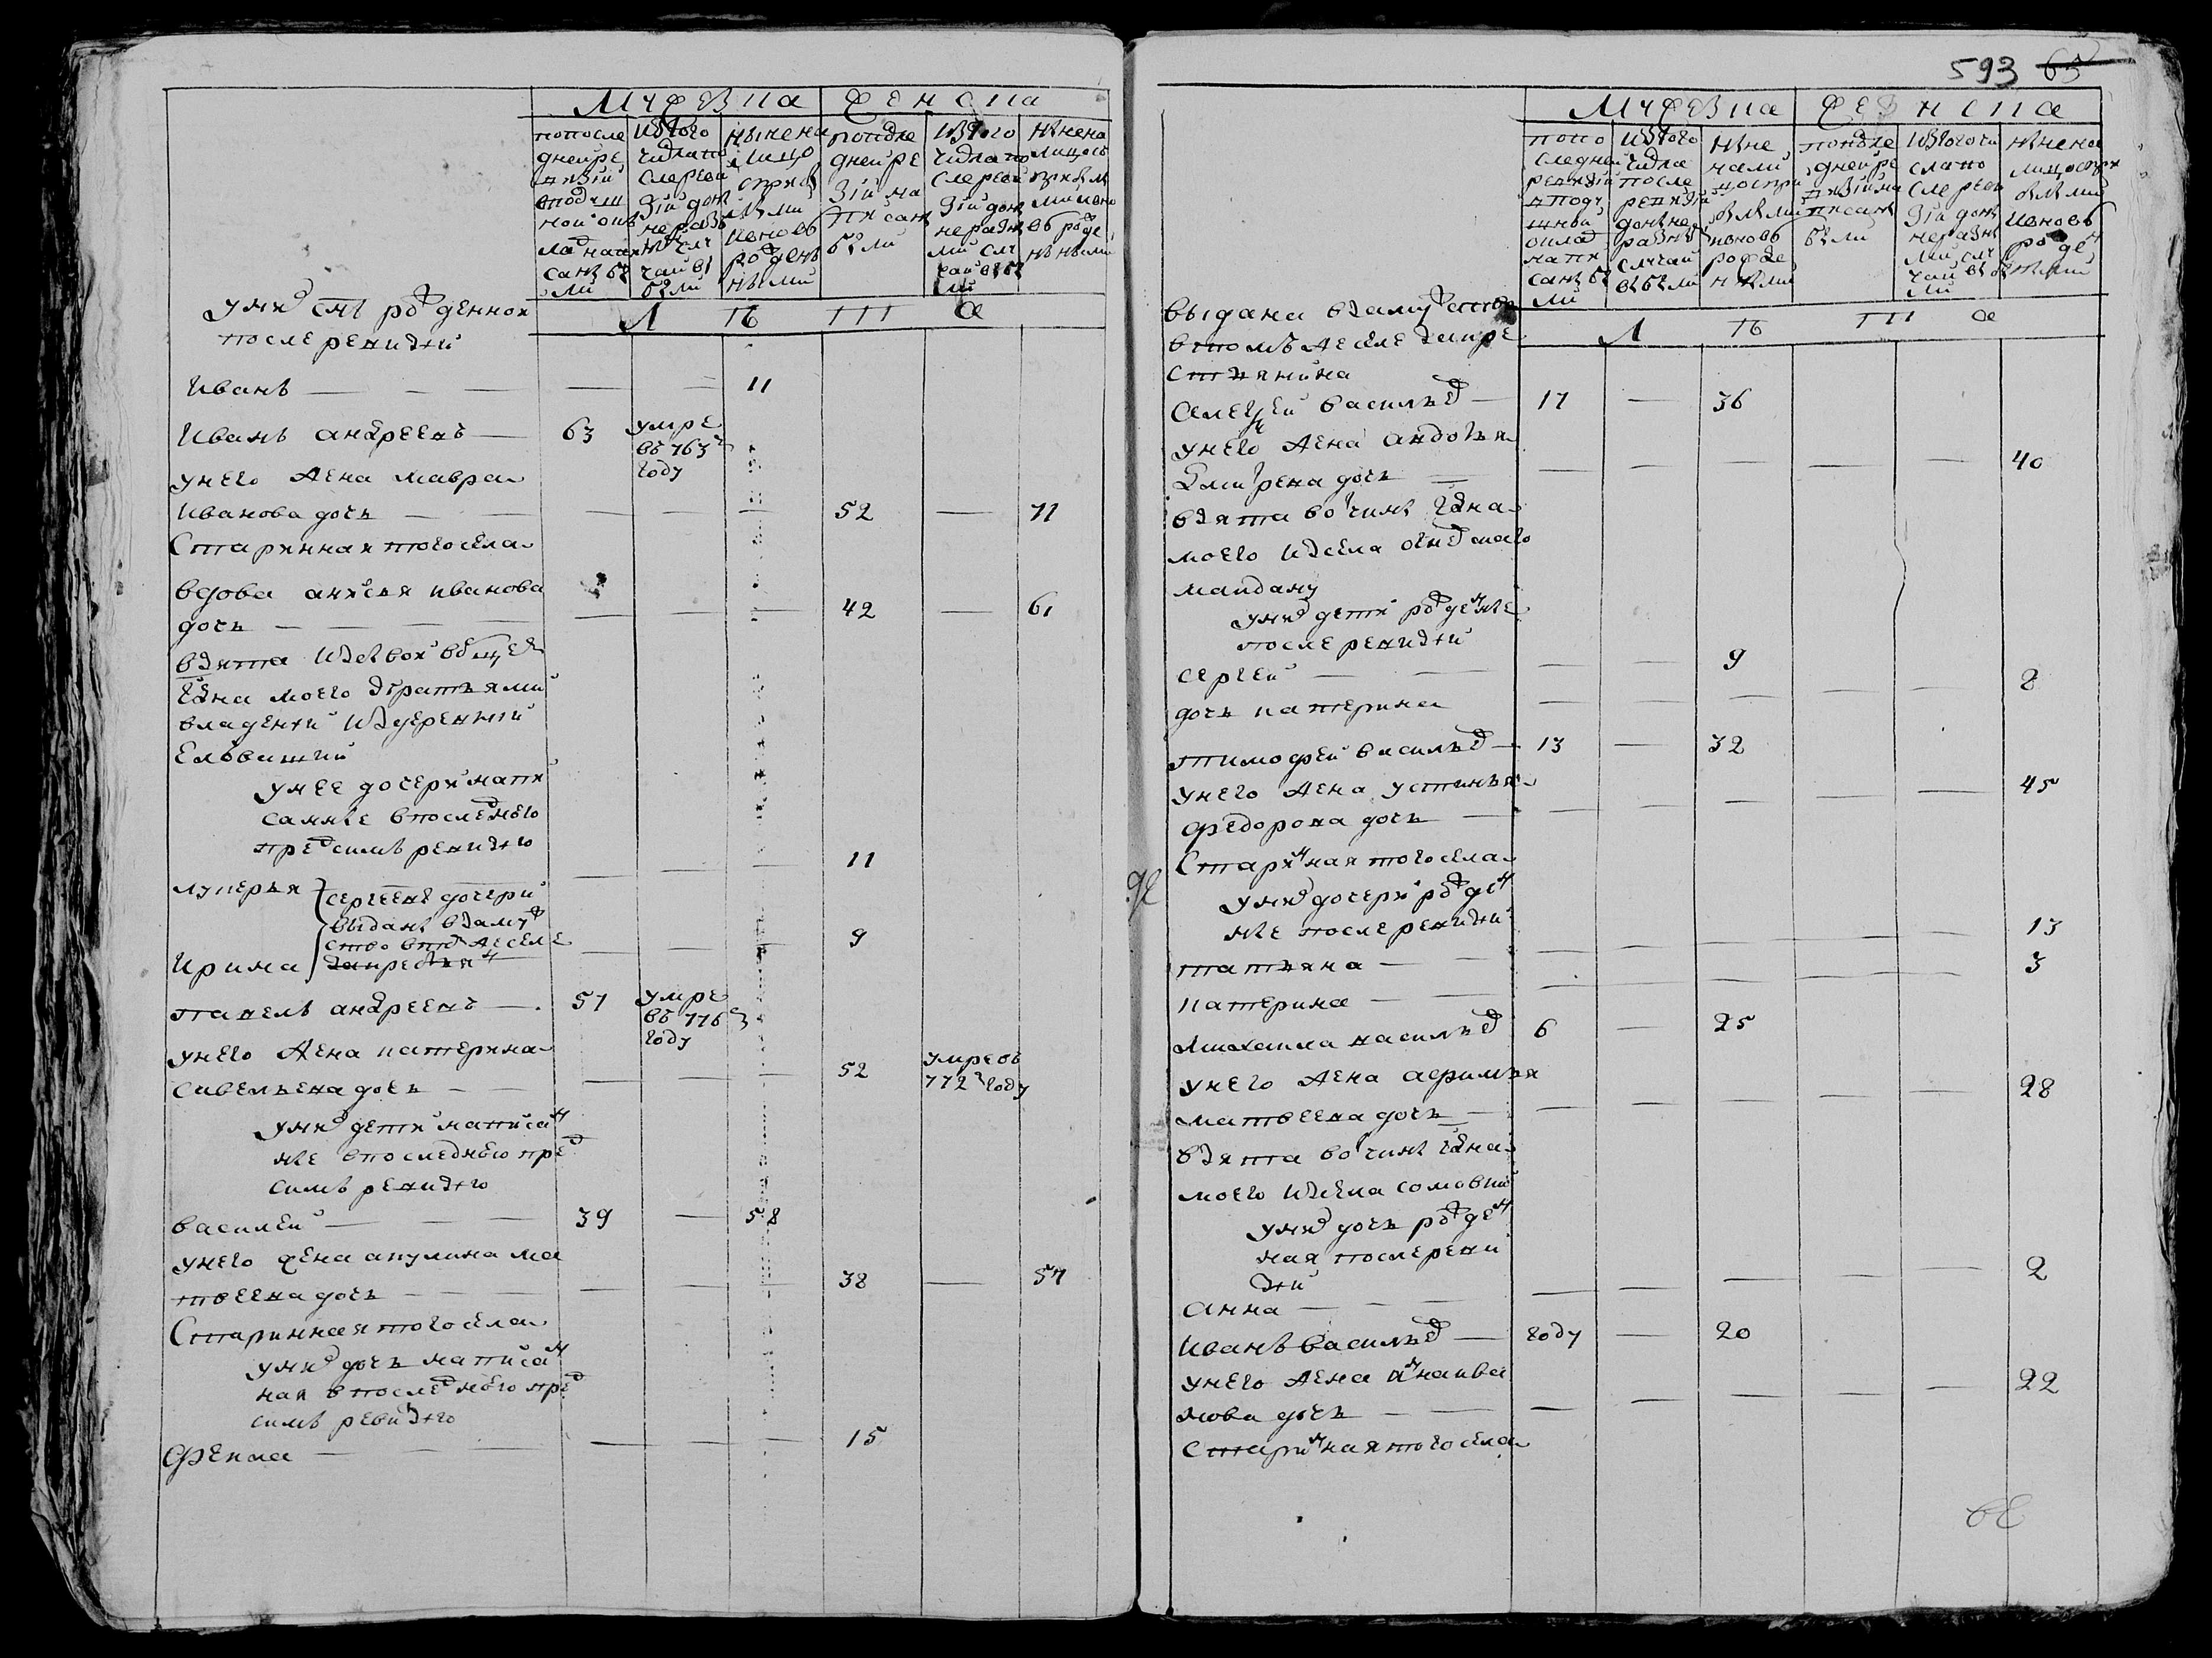 593 65
Мужеска Женска
попосле
дней ре
визии
вподуш
ной окъ
ладнапи
саны бы
ли
Изтого
числапо
следней
зии доны
неразъ
ными слу
чаи вы
были
нынена
лицо
сприб
ылыми
ивновь
рожден
ными
попосле
дней ре
визии на
писаны
были
Изтого
числапо
сле реви
зии доны
неразны
ми слу
чаи выбы
ли
Нынена
лицосъ
прибылы
ми ивно
вь рожде
нными
Л ѣ т а
у них сынъ рожденнои
после ревизии
Иванъ 11
Иванъ андреевъ 63 умре
въ 763 м
году
унего жена мавра
Иванова дочь 52 71
Стариннаятогосела
вдова анисья иванова
дочь 42 61
взята Изъ вои вобщем
Гдна моего збратьями
владении Издеревнии
Елъвашки
унее дочери напи
санные впоследнею
предсимъ ревизию
11
лукерья сергеевы дочери
выданы взаму
ство втож селе
Ирина закрестьян 9
павелъ андреевъ 57 умре
въ 776 м
году
унего жена катерина
савельева дочь 52 умревъ
772 м году
у них дети написан
ные впоследнею пре
симъ ревизию
василей 39 58
унего жена акулина ма
твеева дочь 38 57
Стариннаятогосела
у них дочь написан
ная впоследнею пред
симъ ревизию
Фекла 15
Мужеска Женска
попо
следней
ревизии
вподу
шной
оклад
напи
саны бы
ли
Изтого
числа
после
ревизии
доныне
разны
случаи
выбыли
Ныне
нали
цоспри
былыми
ивновь
рожде
нными
попосле
дней ре
визии на
писаны
были
Изтогочи
слапо
сле реви
зии доны
неразны
ми слу
чаи выбы
ли
Нынена
лицоспри
былыми
Ивновь
рожден
ными
Л ѣ т а
выдана взамужство
втомъ жеселе закре
стьянина
Алексеи васильев 17 36
унего жена авдотья
дочь 40
взята вотчины Гдна
моего Изсела
майдану
у них дети рожденные
после ревизии
сергеи 9
дочь катерина 8
тимофеи васильев 13 32
унего жена устинья
федорова дочь 45
Стариннаятогосела
у них дочери рожден
ные после ревизии
татьяна 13
катерина 3
михаила васильев 6 25
унего жена афимья
матвеева дочь 28
взята вотчины Гдна
моего Изсела
у них дочь рожден
ная послереви
зии
Анна 2
Иванъ васильев году 20
унего жена Анна ива
нова дочь 22
Стариннаятогосела